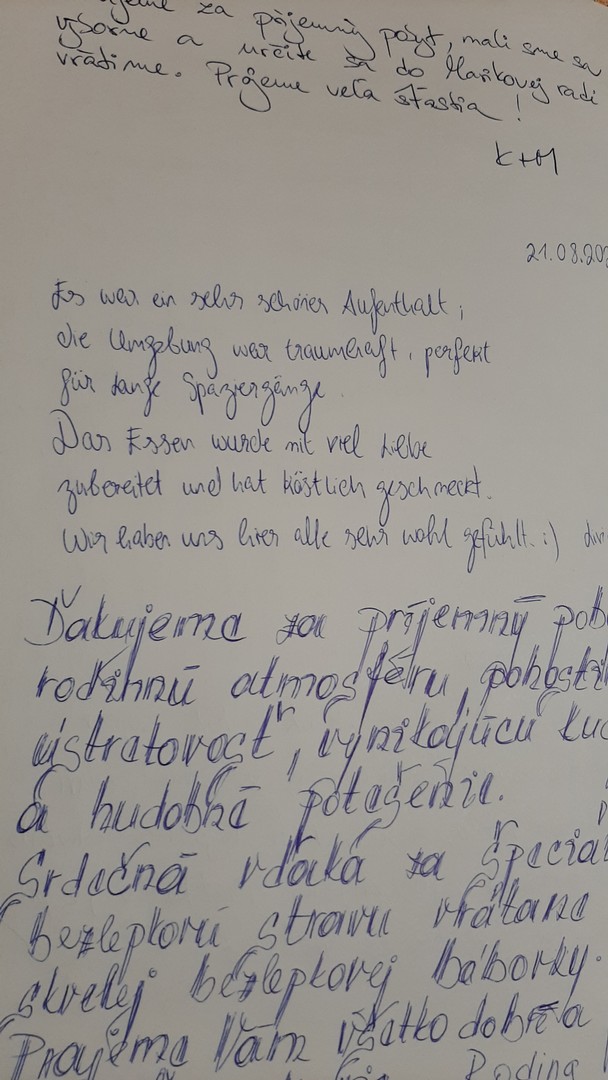 za príjemný pobyt, mali sme sa
výborne a určite sa do Maríkovej radi
vrátime. Prajeme veľa šťastia!
K+M
21.08.202
Es war ein sehr schönes Aufenthalt,
die Umgebung war traumhaft, perfekt
für lange Spaziergänge.
Das Essen wurde mit viel Liebe
zubereitet und hat köstlich geschmeckt.
Wir haben uns hier alle sehr wohl gefühlt. :)
Ďakujeme za príjemný pob
rodinnú atmosféru, pohosti
, vynikajúcu ku
a hudobné potešenie.
Srdečná vďaka za špeciál
bezlepkovú stravu vrátane
skvelej bezlepkovej bábovky.
Prajeme Vám všetko dobré a
Rodina